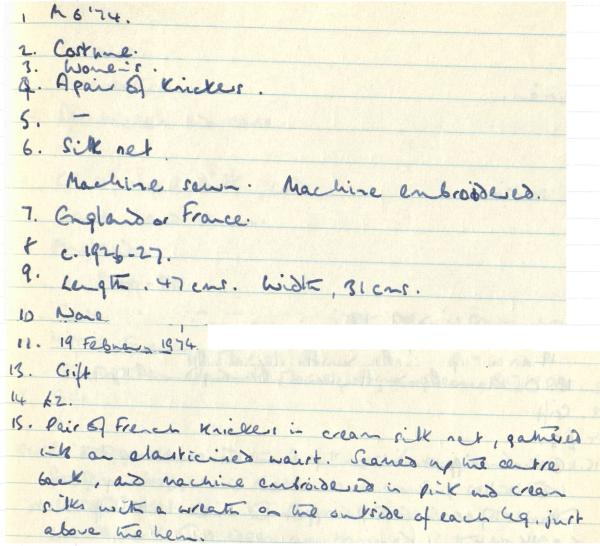 1 M 6 '74.
2. Costume.
3. Women's.
4. A pair of Knickers.
5. —
6. Silk net.
Machine sewn. Machine embroidered.
7. England or France.
8 c. 1926-27.
9. Length, 47 cms. Width, 31 cms.
10 None
11. 19 February 1974.
13. Gift
14 £2.
15. Pair of French Knickers in cream silk net, gathered
into an elasticised waist. Seamed up the centre
back, and machine embroidered in pink and cream
silks with a wreath on the outside of each leg, just
above the hem.